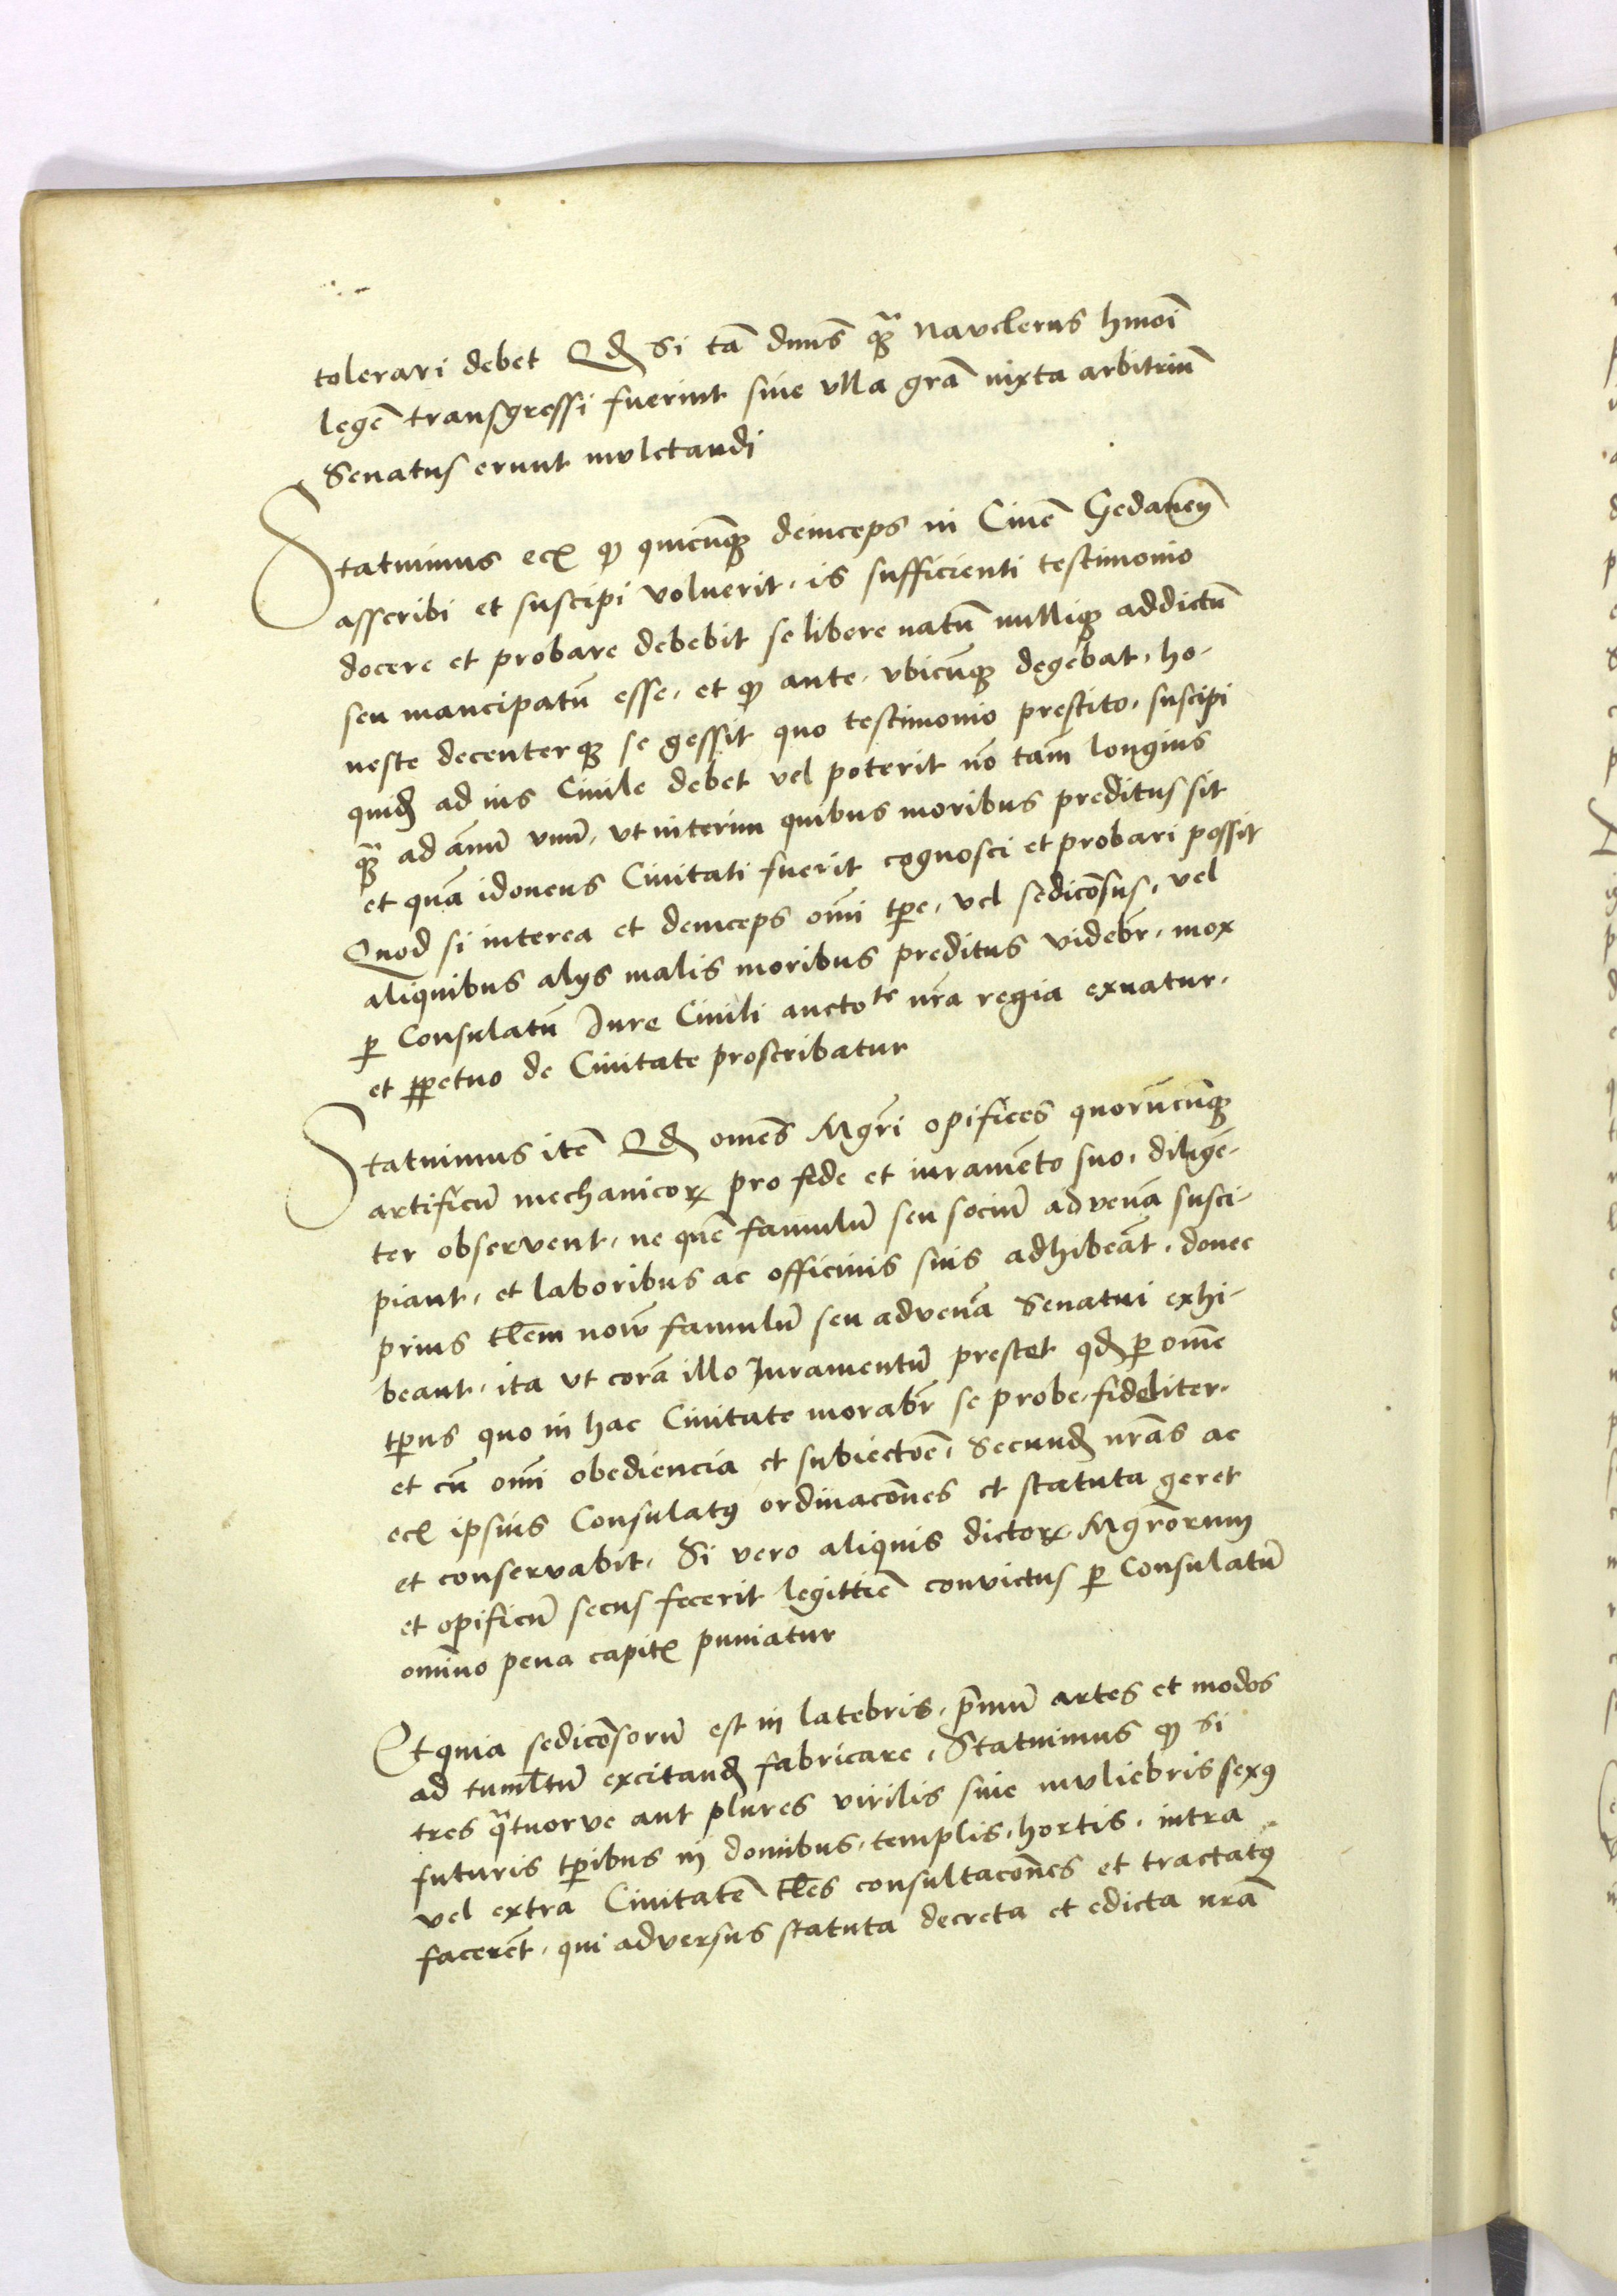 tolerari debet Qđ Si tā dn̄us qꝫ̄ Navclerus hmōi
legē transgressi fuerint sine vlla grā iuxta arbitriū
Senatus erunt mvlctandi
Statuimus ecꝫ qꝫ quicūqꝫ deinceps in Ciuē Gedaneñ
asscribi et suscipi voluerit, is sufficienti testimonio
docere et probare debebit se libere natū nulliqꝫ addictū
seu mancipatū esse, et qꝫ ante, vbicūqꝫ degebat, ho-
neste decenterqꝫ se gessit quo testimonio prestito, suscipi
quiđ ad ius Ciuile debet vel poterit nō tam̄ longius
qꝫ̄ ad annū vnū, vt interim quibus moribus preditus sit
et quā idoneus Ciuitati fuerit cognosci et probari possit
Quod si interea et deinceps om̄i tp̄e, vel sedicōsus, vel
aliquibus alijs malis moribus preditus videbr̄, mox
ꝑ Consulatū Iure Ciuili auctote nr̄a regia exuatur,
et ꝑpetuo de Ciuitate proscribatur
Statuimus itē Qđ om̄es Mgr̄i opifices quorūcūqꝫ
artificū mechanicoꝝ pro fide et iuramēto suo, diligē-
ter observent, ne quē famulū seu sociū advenā susci-
piant, et laboribus ac officinis suis adhibeāt, donec
prius tłem novū famulū seu advenā Senatui exhi-
beant, ita vt corā illo Iuramentū prestet qđ ꝑ om̄e
tp̄us quo in hac Ciuitate morabr̄ se probe, fideliter,
et cū om̄i obediencia et subiectōe, Secunđ nr̄as ac
ecꝫ ipsius Consulatꝰ ordinacōnes et statuta geret
et conservabit, Si vero aliquis dictoꝝ Mgr̄orum
et opificū secus fecerit legittīe convictus ꝑ Consulatū
om̄ino pena capitꝭ puniatur
Et quia sedicōsorū est in latebris, p̄mū artes et modos
ad tumłtū excitanđ fabricare, Statuimus qꝫ si
tres qᵃtuorve aut plures virilis siue mvliebris sexꝰ
futuris tp̄ibus in domibus, templis, hortis, intra
vel extra Ciuitatē tłes consultacōnes et tractatꝰ
facerēt, qui adversus statuta decreta et edicta nr̄a